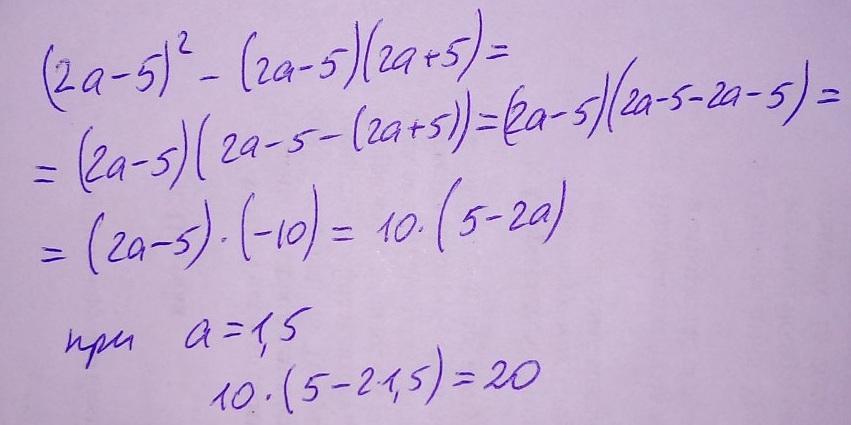 (2a-5)² - (2a-5)(2a+5) =
= (2a-5)(2a-5-(2a+5)) = (2a-5)(2a-5-2a-5) =
= (2a-5)·(-10) = 10·(5-2a)
при a = 1,5
10·(5-2·1,5) = 20